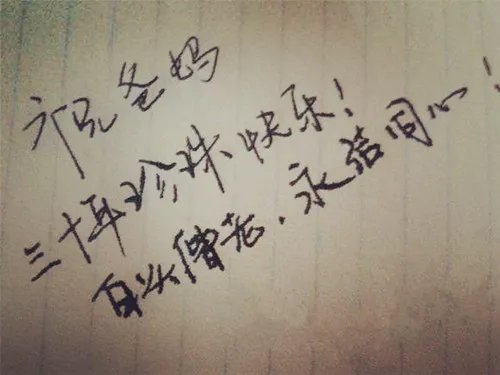 祝爸妈
三十年珍珠快乐!
白头偕老.永结同心!